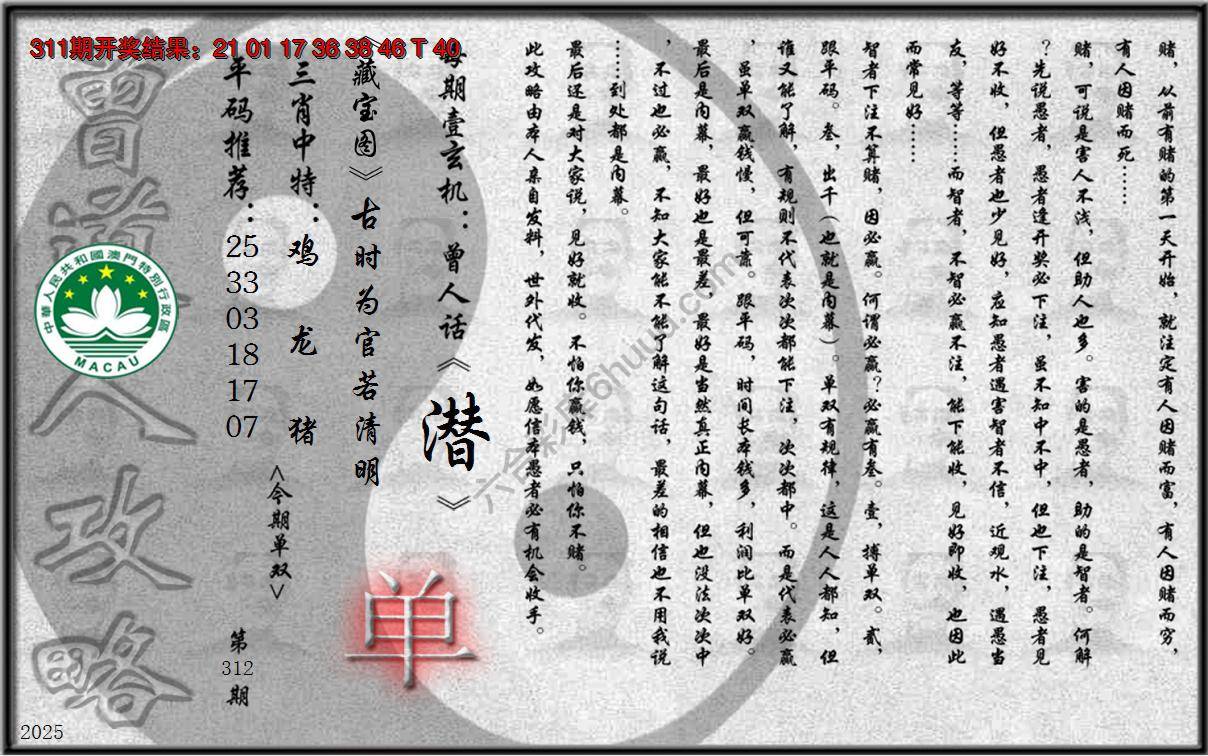 311期开奖结果：21 01 17 36 38 46 T 40
赌，从前有赌的第一天开始，就注定有人因赌而富，有人因赌而穷，
有人因赌而死……
赌，可说是害人不浅，但助人也多。害的是愚者，助的是智者。何解
？先说愚者，愚者逢开奖必下注，虽不知中不中，但也下注，愚者见
好不收，但愚者也少见好，应知愚者遇害智者不信，近观水，遇愚当
友，等等……而智者，不智必赢不注，能下能收，见好即收，也因此
而常见好……
智者下注不算赌，因必赢。何谓必赢？必赢有叁。壹，搏单双。贰，
跟平码。叁，出千（也就是内幕）。单双有规律，这是人人都知，但
谁又能了解，有规则不代表次次都能下注，次次都中。而是代表必赢
，虽单双赢钱慢，但可靠。跟平码，时间长本钱多，利润比单双好。
最后是内幕，最好也是最差，最好是当然真正内幕，但也没法次次中
，不过也必赢，不知大家能不能了解这句话，最差的相信也不用我说
……到处都是内幕。
最后还是对大家说，见好就收。不怕你赢钱，只怕你不赌。
此攻略由本人亲自发料，世外代发，如愿信本愚者必有机会收手。
每期壹玄机：曾人话《潜》
《藏宝图》古时为官若清明
单
三肖中特：鸡 龙 猪
<今期单双>
平码推荐：
25
33
03
18
17
07
第
312
期
曾道人攻略
中華人民共和國澳門特別行政區
MACAU
2025
六合彩库6huuu.com